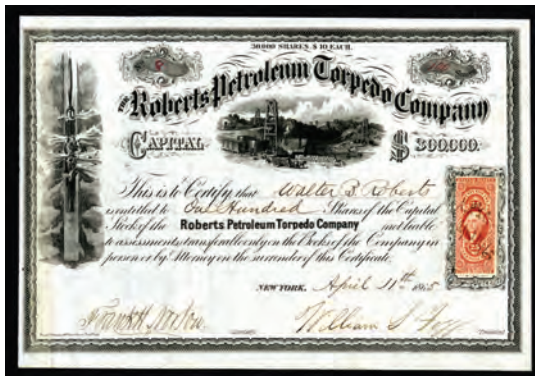 30000 SHARES $10 EACH.
8
100
THE Roberts Petroleum Torpedo Company
CAPITAL $300.000.
This is to Certify that Walter B. Roberts
is entitled to One Hundred Shares of the Capital
Stock of the Roberts Petroleum Torpedo Company not liable
to assessments, transferable only on the Books of the Company in
person or by Attorney on the surrender of this Certificate.
NEW YORK, April 11th 1865
William